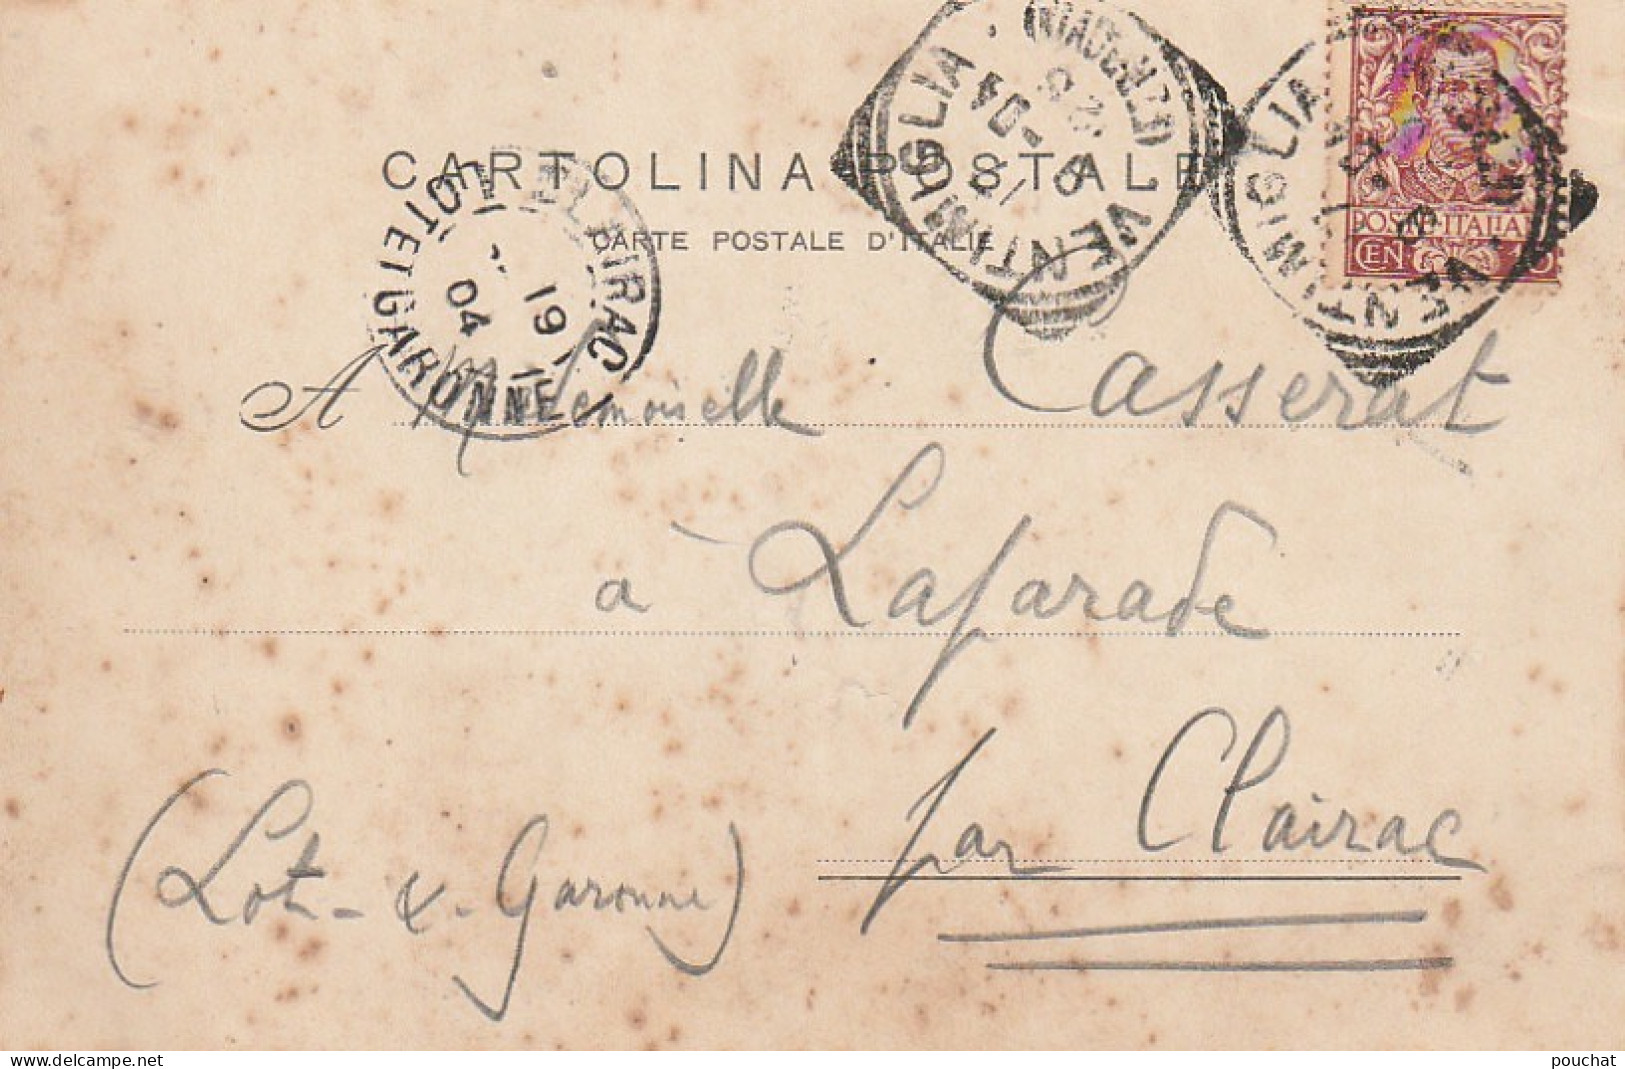 CARTOLINA POSTALE
CARTE POSTALE D'ITALIE
VENTIMIGLIA
04
VENTIMIGLIA
POSTE ITALIANE
CEN 10
CLAIRAC
LOT ET GARONNE
19
04
A Mademoiselle Casserat
à Laparade
par Clairac
(Lot-&-Garonne)
pouchat